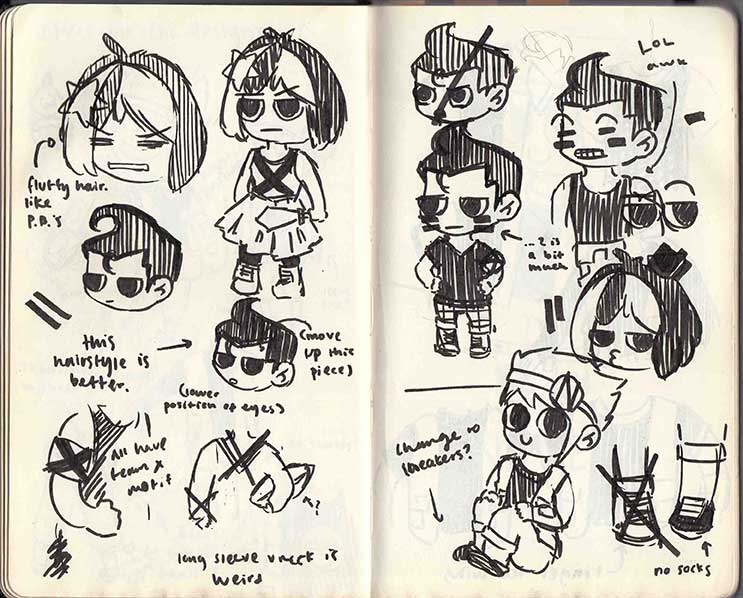 fluffy hair.
like
P.B.'s
this
hairstyle is
better.
(move
up this
piece)
(lower
position of eyes)
All have
team x
motif
?
long sleeve vneck is
weird
LOL
awk
... 2 is
a bit
much
change to
sneakers?
no socks